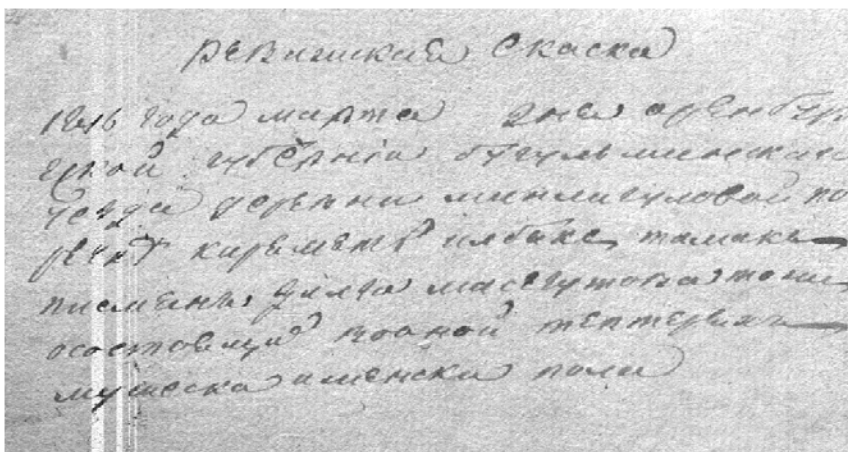 ревишская скаска
1816 года марта дня оренбур
гской губернии бугульминскаго
уезда деревни минлигуловой по
речке кирьметь илбаке тамаке
писмен масегутова
осостоящи новной тептерях
мужеска и женска пола